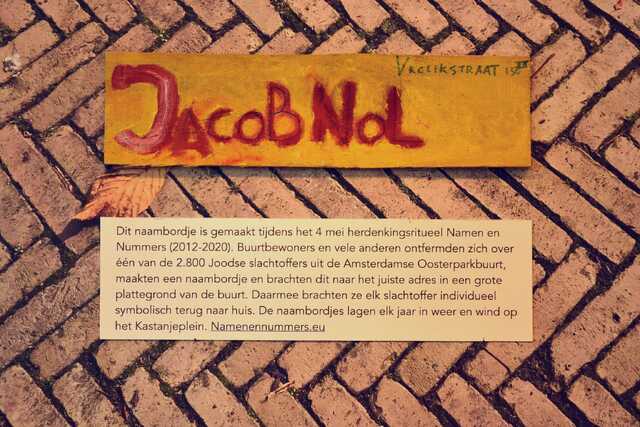 VROLIKSTRAAT 15
JACOB NOL
Dit naambordje is gemaakt tijdens het 4 mei herdenkingsritueel Namen en
Nummers (2012-2020). Buurtbewoners en vele anderen ontfermden zich over
één van de 2.800 Joodse slachtoffers uit de Amsterdamse Oosterparkbuurt,
maakten een naambordje en brachten dit naar het juiste adres in een grote
plattegrond van de buurt. Daarmee brachten ze elk slachtoffer individueel
symbolisch terug naar huis. De naambordjes lagen elk jaar in weer en wind op
het Kastanjeplein. Namenennummers.eu